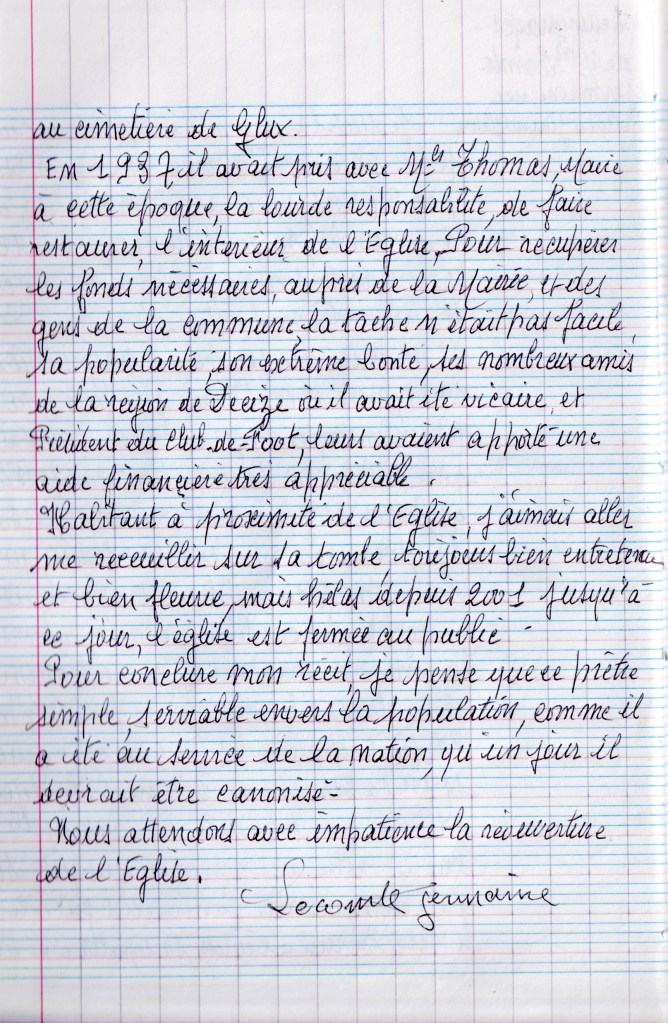 au cimetière de Glux.
En 1937, il avait pris avec Mr Thomas, Maire
à cette époque, la lourde responsabilité, de faire
restaurer, l'intérieur de l'Eglise, Pour récupérer
les fonds nécéssaires, auprès de la Mairie, et des
gens de la commune, la tâche n'était pas facile,
sa popularité, son extrême bonté, ses nombreux amis
de la région de Decize où il avait été vicaire, et
Président du Club-de-Foot, leurs avaient apporté une
aide financière très appréciable.
Habitant à proximité de l'Eglise, j'aimais aller
me receuiller sur sa tombe, toujours bien entretenue
et bien fleurie, mais hélas depuis 2001 jusqu'à
ce jour, l'église est fermée au public -
Pour conclure mon récit, je pense que ce prêtre
simple, serviable envers la population, comme il
a été au service de la nation, qu'un jour il
devrait être canonisé-
Nous attendons avec impatience la réouverture
de l'Eglise.
Lecomte Germaine